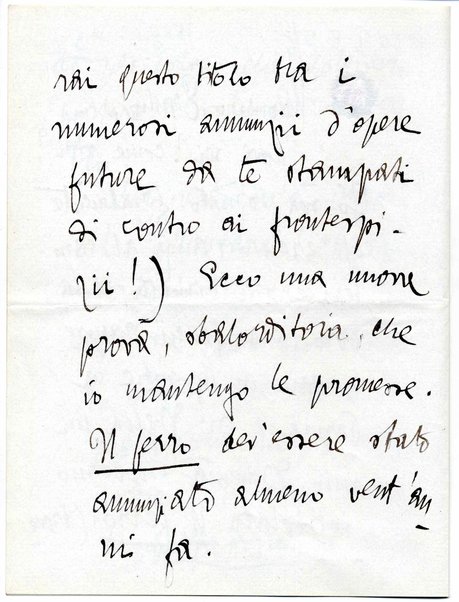 rai questo titolo tra i
numerosi annunzii d'opere
future da te stampati
di contro ai frontespi-
zii!) Ecco una nuova
prova, sbalorditoia, che
io mantengo le promesse.
Il ferro dev'essere stato
annunziato almeno vent'an
ni fa.